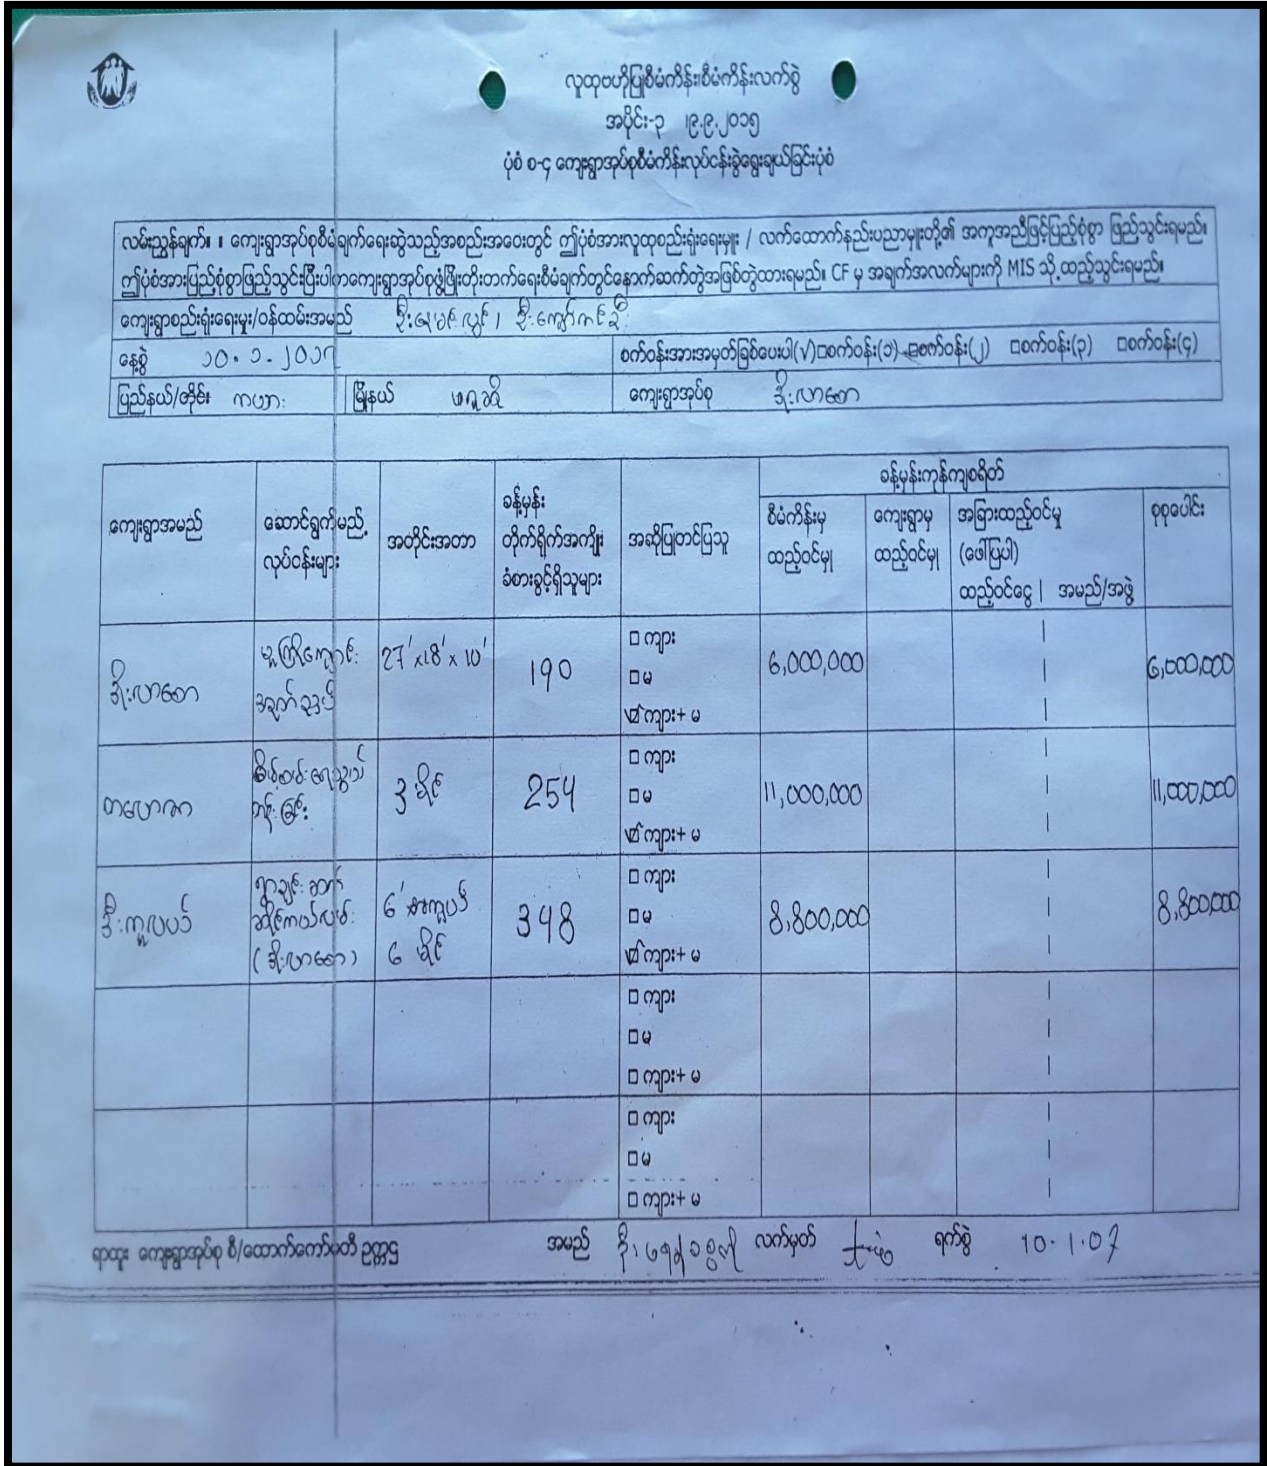 လူထုဗဟိုပြုစီမံကိန်း၊စီမံကိန်းလက်စွဲ
အပိုင်း-၃ ၊၉.၉.၂၀၁၅
ပုံစံ စ-၄ ကျေးရွာအုပ်စုစီမံကိန်းလုပ်ငန်းခွဲရွေးချယ်ခြင်းပုံစံ
လမ်းညွှန်ချက်။ ။ ကျေးရွာအုပ်စုစီမံချက်ရေးဆွဲသည့်အစည်းအဝေးတွင် ဤပုံစံအားလူထုစည်းရုံးရေးမှူး / လက်ထောက်နည်းပညာမှူးတို့၏ အကူအညီဖြင့်ပြည့်စုံစွာ ဖြည့်သွင်းရမည်။
ဤပုံစံအားပြည့်စုံစွာဖြည့်သွင်းပြီးပါကကျေးရွာအုပ်စုဖွံ့ဖြိုးတိုးတက်ရေးစီမံချက်တွင်နောက်ဆက်တွဲအဖြစ်တွဲထားရမည်။ CF မှ အချက်အလက်များကို MIS သို့ ထည့်သွင်းရမည်။
ကျေးရွာစည်းရုံးရေးမှူး/ဝန်ထမ်းအမည်
နေ့စွဲ ၁၀.၁.၂၀၁၇ စက်ဝန်းအားအမှတ်ခြစ်ပေးပါ(√)□စက်ဝန်း(၁) □စက်ဝန်း(၂) □စက်ဝန်း(၃) □စက်ဝန်း(၄)
ပြည်နယ်/တိုင်း ကယား မြို့နယ် ဖရူဆို ကျေးရွာအုပ်စု ဒိုးလာစော
ခန့်မှန်းကုန်ကျစရိတ်
ကျေးရွာအမည် ဆောင်ရွက်မည့် လုပ်ငန်းများ အတိုင်းအတာ ခန့်မှန်း တိုက်ရိုက်အကျိုး ခံစားခွင့်ရှိသူများ အဆိုပြုတင်ပြသူ စီမံကိန်းမှ ထည့်ဝင်မှု ကျေးရွာမှ ထည့်ဝင်မှု အခြားထည့်ဝင်မှု (ဖော်ပြပါ) ထည့်ဝင်ငွေ | အမည်/အဖွဲ့ စုစုပေါင်း
ဒိုးလာစော မူကြိုကျောင်း 27' x 18' x 10' 190 □ ကျား 6,000,000 6,000,000
□ မ
☑ ကျား+ မ
၃ မိုင် 254 □ ကျား 11,000,000 11,000,000
□ မ
☑ ကျား+ မ
(ဒိုးလာစော) ၆' ၆ မိုင် 348 □ ကျား 8,800,000 8,800,000
□ မ
☑ ကျား+ မ
□ ကျား
□ မ
□ ကျား+ မ
□ ကျား
□ မ
□ ကျား+ မ
ရာထူး ကျေးရွာအုပ်စု စီ/ထောက်ကော်မတီ ဥက္ကဋ္ဌ အမည် လက်မှတ် ရက်စွဲ 10.1.07